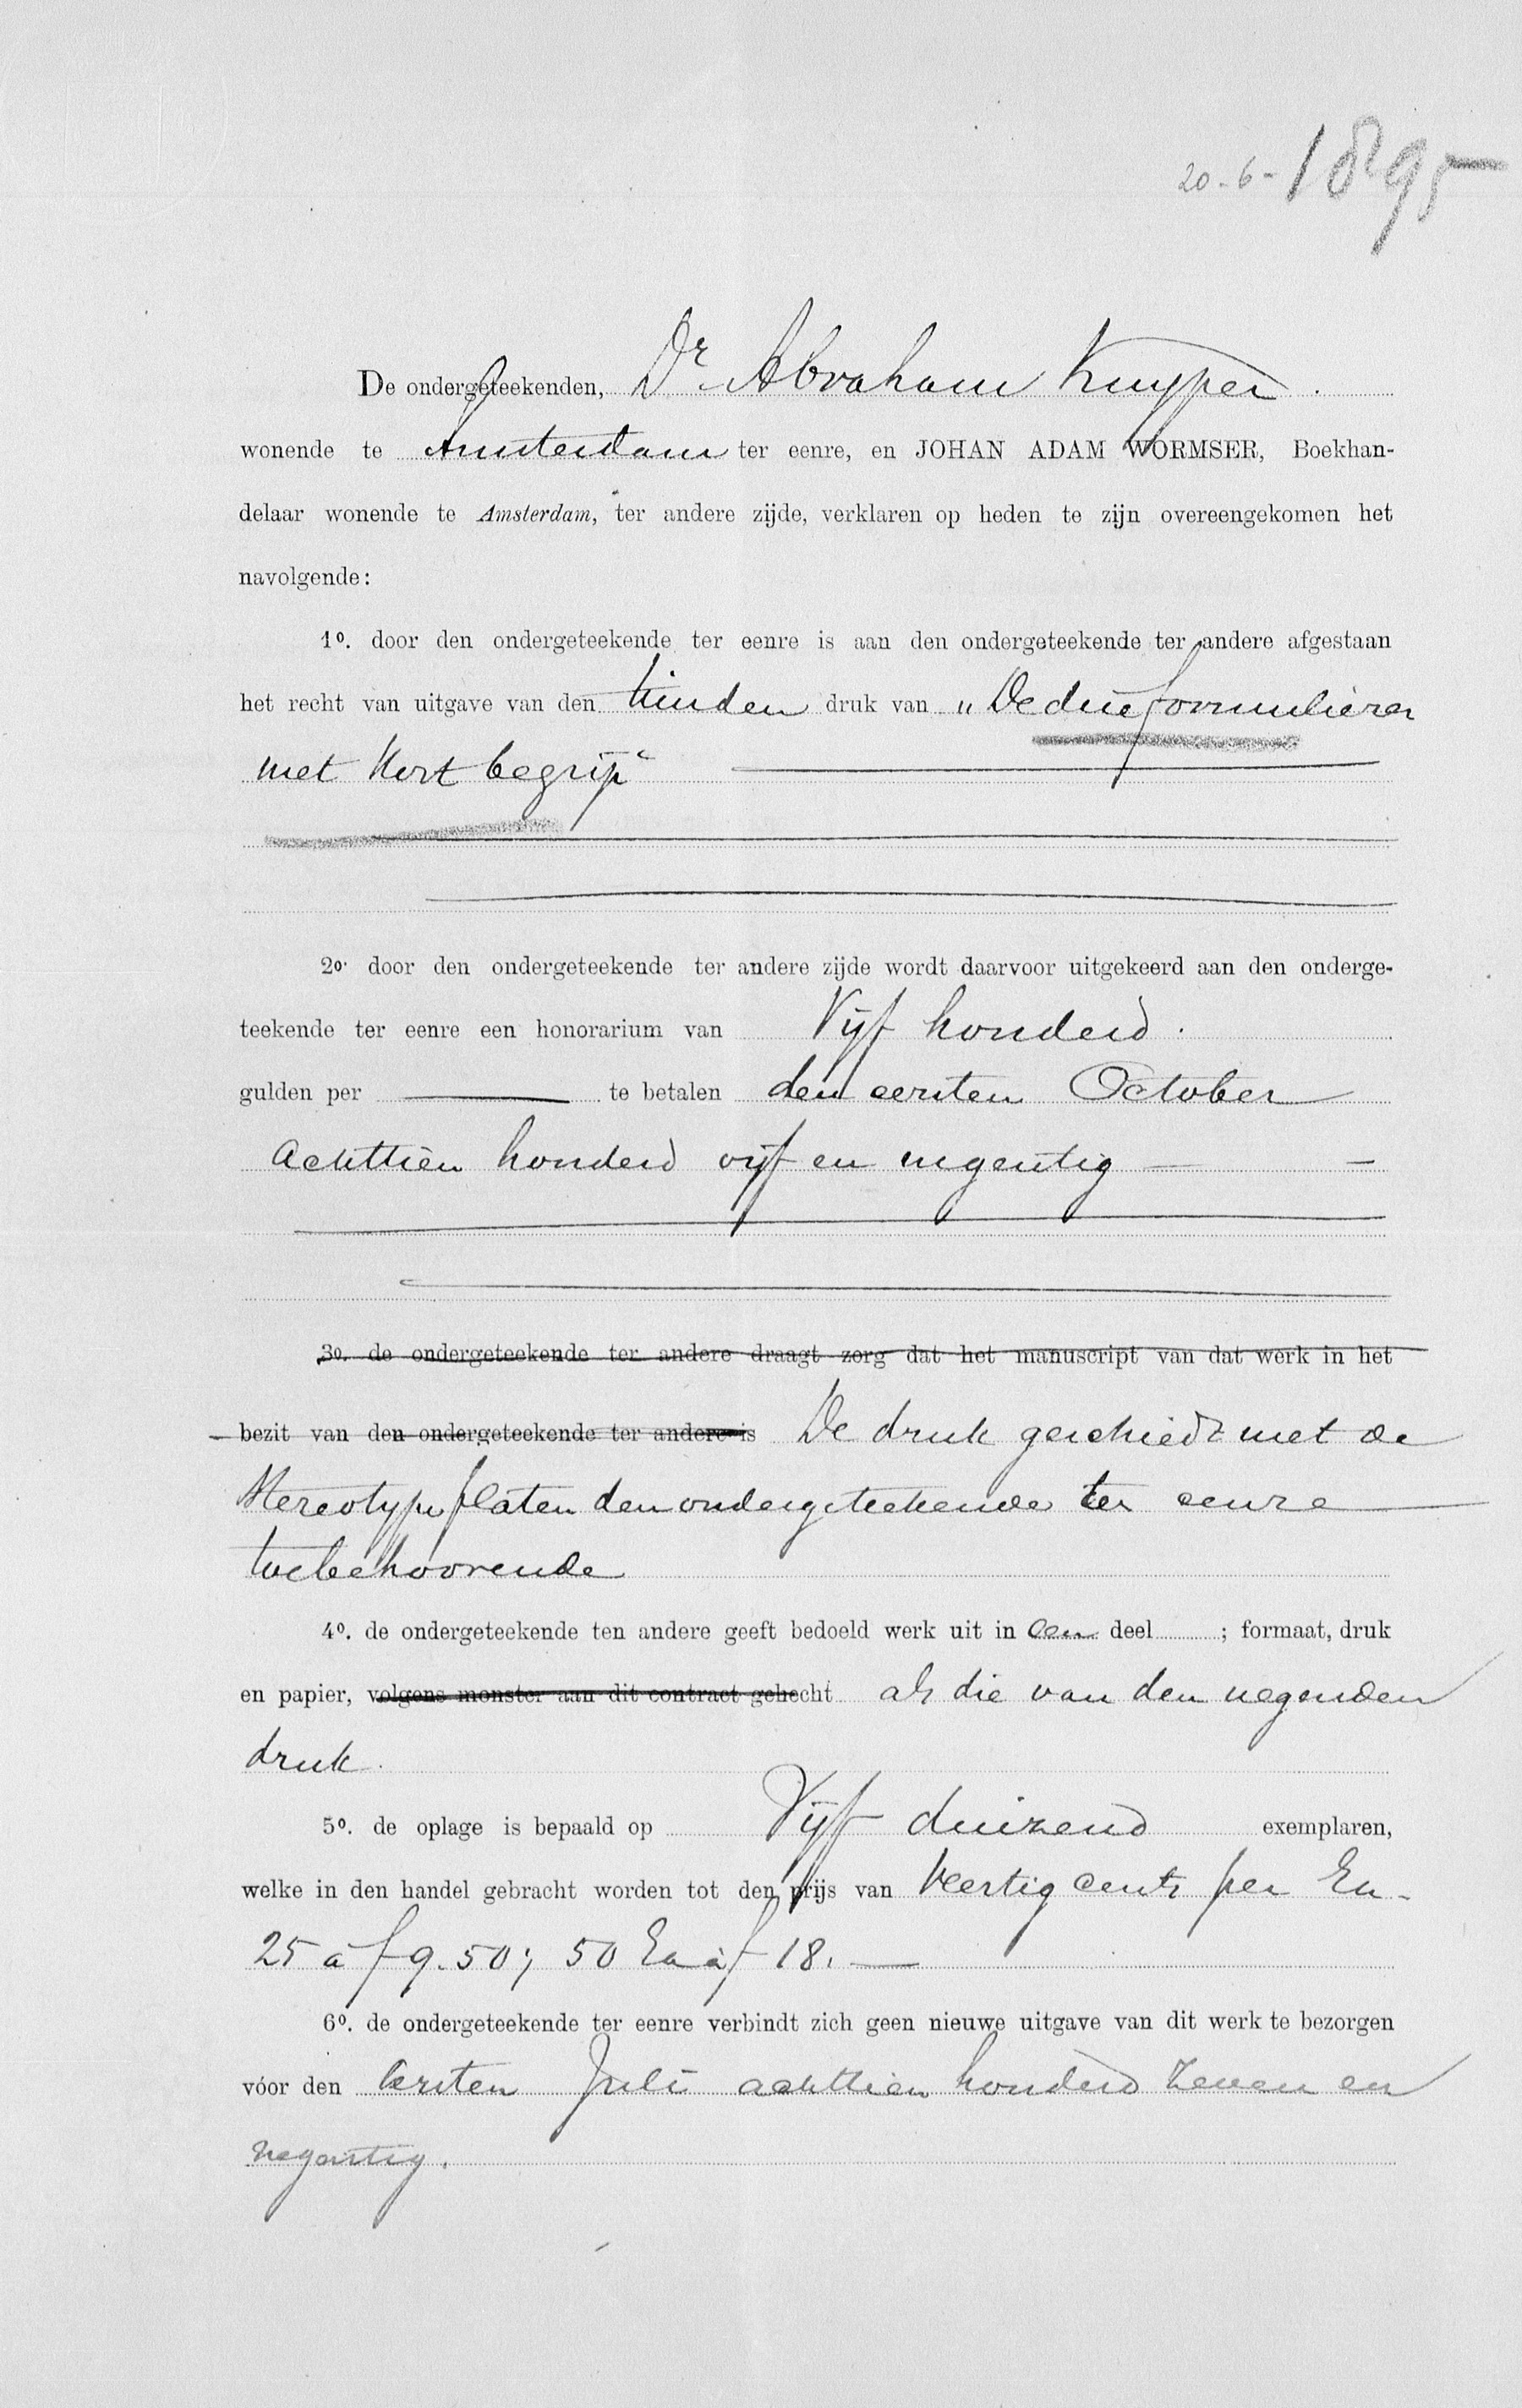 20-6-1895
De ondergeteekenden, Dr. Abraham Kuyper.
wonende te Amsterdam ter eenre, en JOHAN ADAM WORMSER, Boekhan-
delaar wonende te Amsterdam, ter andere zijde, verklaren op heden te zijn overeengekomen het
navolgende:
1o. door den ondergeteekende ter eenre is aan den ondergeteekende ter andere afgestaan
het recht van uitgave van den tienden druk van „De drie formulieren
met Kort begrip"
2o. door den ondergeteekende ter andere zijde wordt daarvoor uitgekeerd aan den onderge-
teekende ter eenre een honorarium van Vijf honderd.
gulden per — te betalen den eersten October
achttien honderd vijf en negentig —
3o. de ondergeteekende ter andere draagt zorg dat het manuscript van dat werk in het
bezit van den ondergeteekende ter andere is De druk geschiedt met de
Stereotypeplaten den ondergeteekende ter eenre
toebehoorende
4o. de ondergeteekende ten andere geeft bedoeld werk uit in een deel ; formaat, druk
en papier, volgens monster aan dit contract gehecht als die van den negenden
druk.
5o. de oplage is bepaald op Vijf duizend exemplaren,
welke in den handel gebracht worden tot den prijs van Veertig cents per Ex-
25 à f 9.50; 50 Ex à f 18.—
6o. de ondergeteekende ter eenre verbindt zich geen nieuwe uitgave van dit werk te bezorgen
vóor den eersten Juli achttien honderd zeven en
negentig.